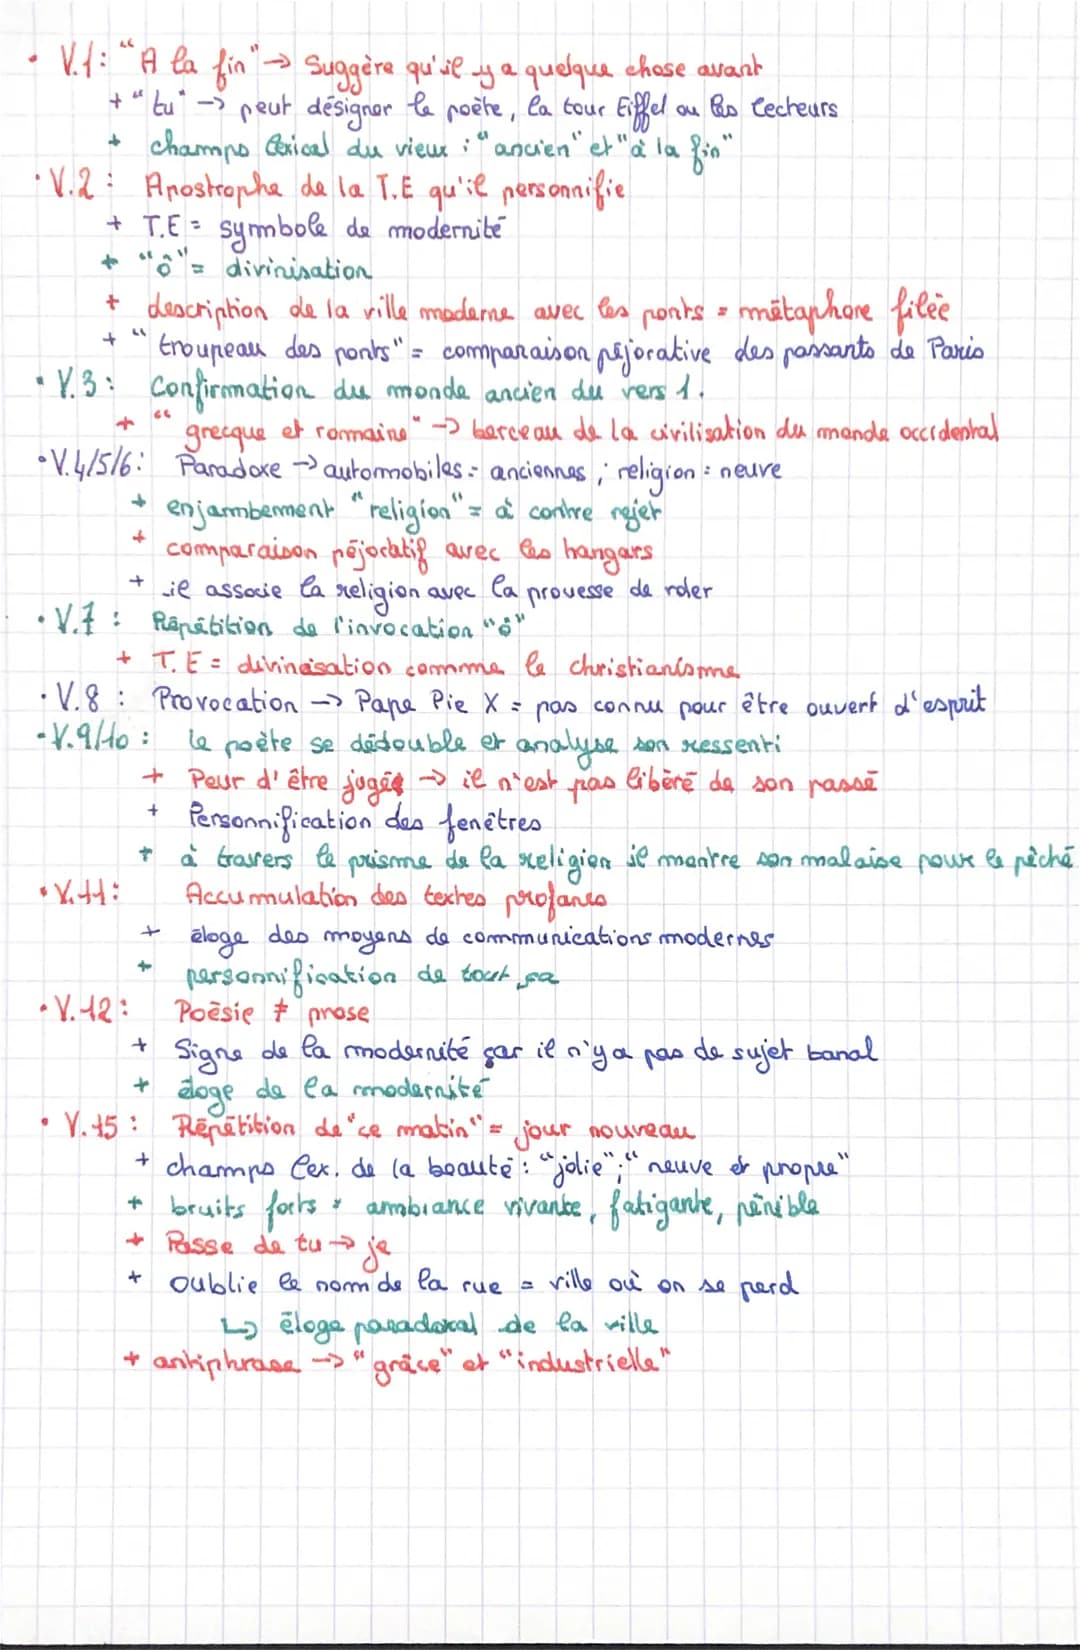 • V.1: "A la fin" → Suggère qu'il y a quelque chose avant
+ "tu" → peut désigner le poète, la tour Eiffel ou les lecteurs
+ champs lexical du vieux : "ancien" et "à la fin"
• V.2 : Apostrophe de la T.E qu'il personnifie
+ T.E = symbole de modernité
+ "ô" = divinisation
+ description de la ville moderne avec les ponts = métaphore filée
+ "troupeau des ponts" = comparaison péjorative des passants de Paris
• V.3 : Confirmation du monde ancien du vers 1.
+ "grecque et romaine" → berceau de la civilisation du monde occidental
• V.4/5/6 : Paradoxe → automobiles = anciennes ; religion = neuve
+ enjambement "religion" = à contre rejet
+ comparaison péjoratif avec les hangars
+ il associe la religion avec la prouesse de roler
• V.7 : Répétition de l'invocation "ô"
+ T.E = divinisation comme le christianisme
• V.8 : Provocation → Pape Pie X = pas connu pour être ouvert d'esprit
- V.9/10 : le poète se dédouble et analyse son ressenti
+ Peur d'être jugée → il n'est pas libéré de son passé
+ Personnification des fenêtres
+ à travers le prisme de la religion il montre son malaise pour le pêché
• V.11: Accumulation des textes profanes
+ éloge des moyens de communications modernes
+ personnification de tout ça
• V.12 : Poésie ≠ prose
+ Signe de la modernité car il n'y a pas de sujet banal
+ éloge de la modernité
• V.15 : Répétition de "ce matin" = jour nouveau
+ champs lex. de la beauté : "jolie" ; "neuve et propre"
+ bruits forts = ambiance vivante, fatigante, pénible
+ Passe de tu → je
+ oublie le nom de la rue = ville où on se perd
↳ éloge paradoxal de la ville
+ antiphrase → "grâce" et "industrielle"